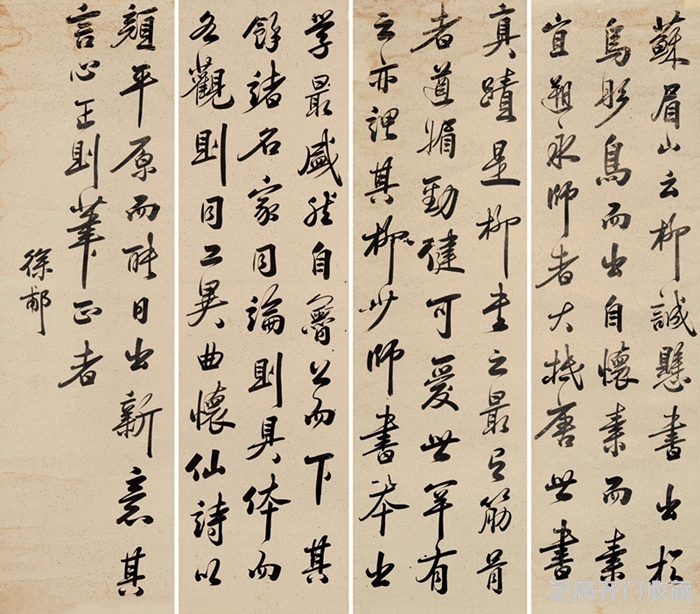 蘇眉山云柳誠懸書出於
烏彤鳥而出自懷素而素
宜遡永師者大抵唐世書
真蹟是柳書之最有筋骨
者遒媚勁健可愛世罕有
之亦謂其柳少師書本出
學最盛然自魯公而下其
餘諸名家同論則具体而
各觀則同工異曲懷仙詩以
顏平原而能日出新意其
言心正則筆正者
徐郙